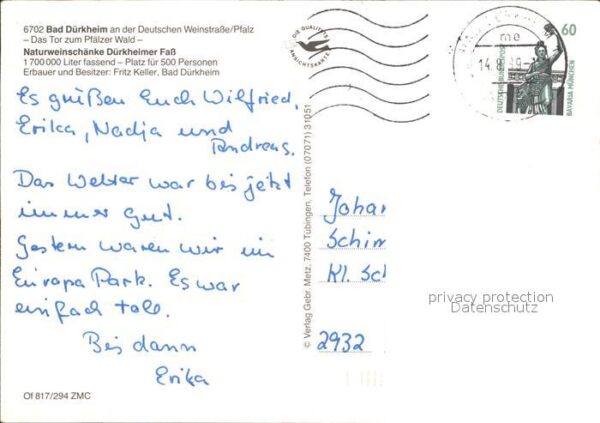 6702 Bad Dürkheim an der Deutschen Weinstraße/Pfalz
– Das Tor zum Pfälzer Wald –
Naturweinschänke Dürkheimer Faß
1 700 000 Liter fassend – Platz für 500 Personen
Erbauer und Besitzer: Fritz Keller, Bad Dürkheim
DIE QUALITÄTS
ANSICHTSKARTE
60
DEUTSCHE BUNDESPOST
BAVARIA MÜNCHEN
me
14.
Es grüßen Euch Wilfried,
Erika, Nadja und
Andreas.
Das Wetter war bis jetzt
immer gut.
Gestern waren wir im
Europa Park. Es war
einfach toll.
Bis dann
Erika
© Verlag Gebr. Metz, 7400 Tübingen, Telefon (07071) 31051
Johan
Schim
Kl. Sch
2932
privacy protection
Datenschutz
Of 817/294 ZMC